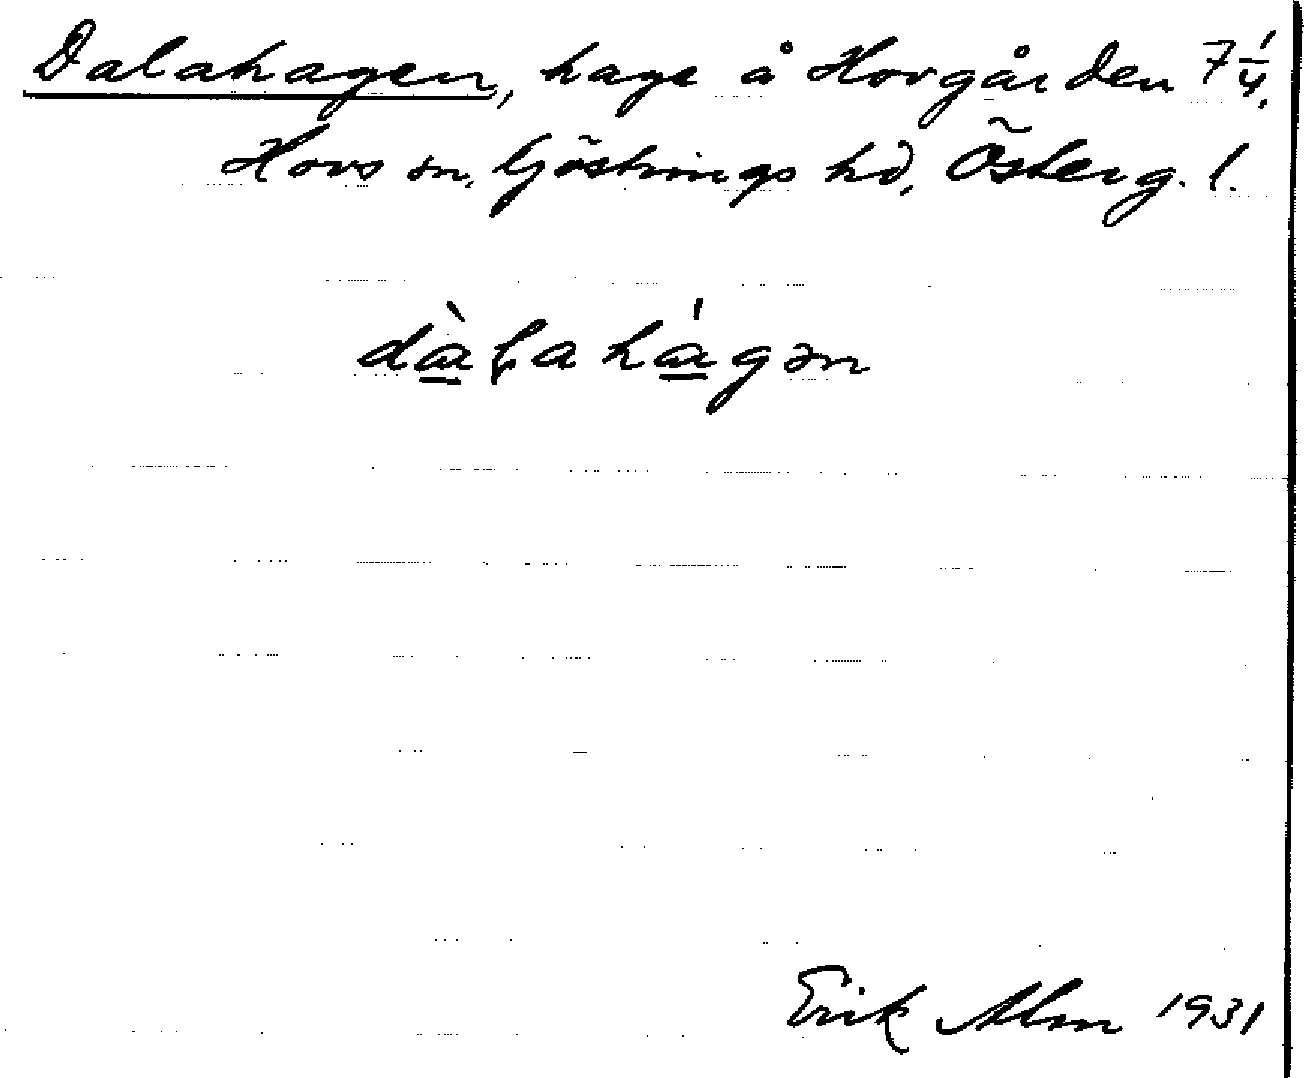 Dalahagen, hage å Hovgården 7 1/4,
Hovs sn, Göstrings hd, Österg. l.
dàɽahágən
Erik Alm 1931